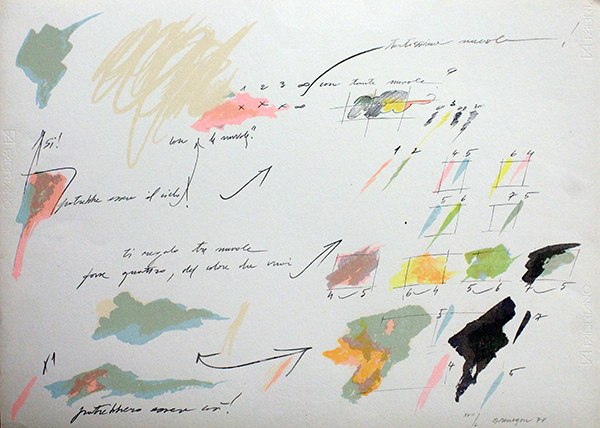 tantissime nuvole !
1 2 3 ∞ con tante nuvole ?
x x x ∞
Si!
con 4 nuvole?
3
1 2
4 5 6 4
5 6 7 5
potrebbe essere il cielo!
ti regalo tre nuvole
forse quattro, del colore che vuoi
4 5 6 4 5 6 7 5
5
7
x 1
4
5
potrebbero essere così!